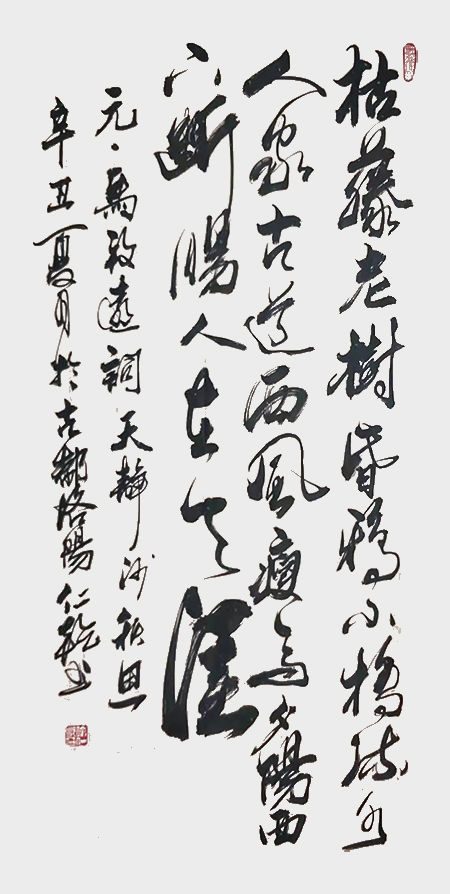 枯藤老樹昏鴉小橋流水
人家古道西風瘦馬夕陽西
下斷腸人在天涯
元、馬致遠詞天淨沙秋思
辛丑夏月於古都洛陽仁乾書